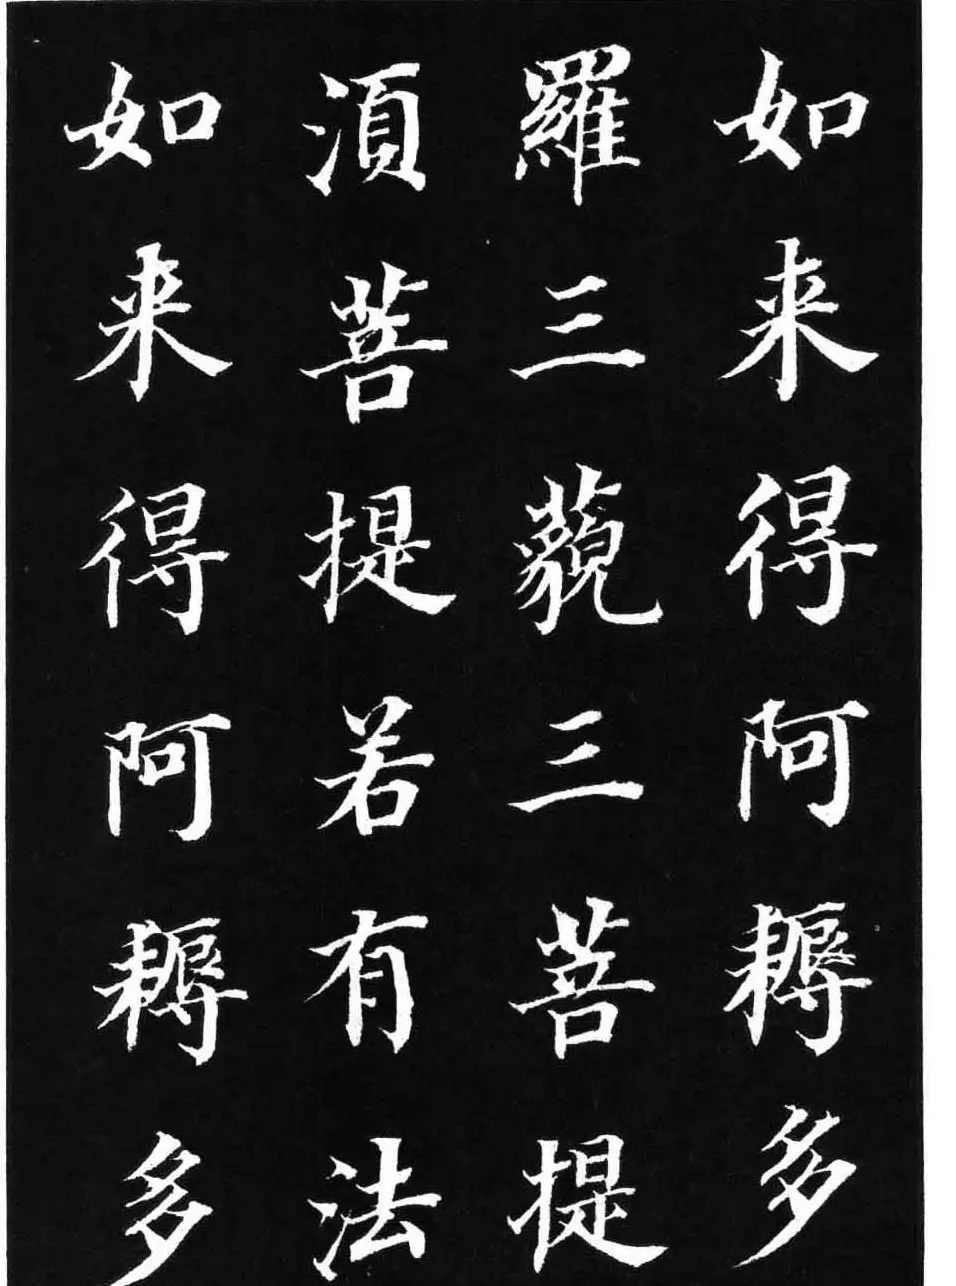 如来得阿耨多
羅三藐三菩提
湏菩提若有法
如来得阿耨多